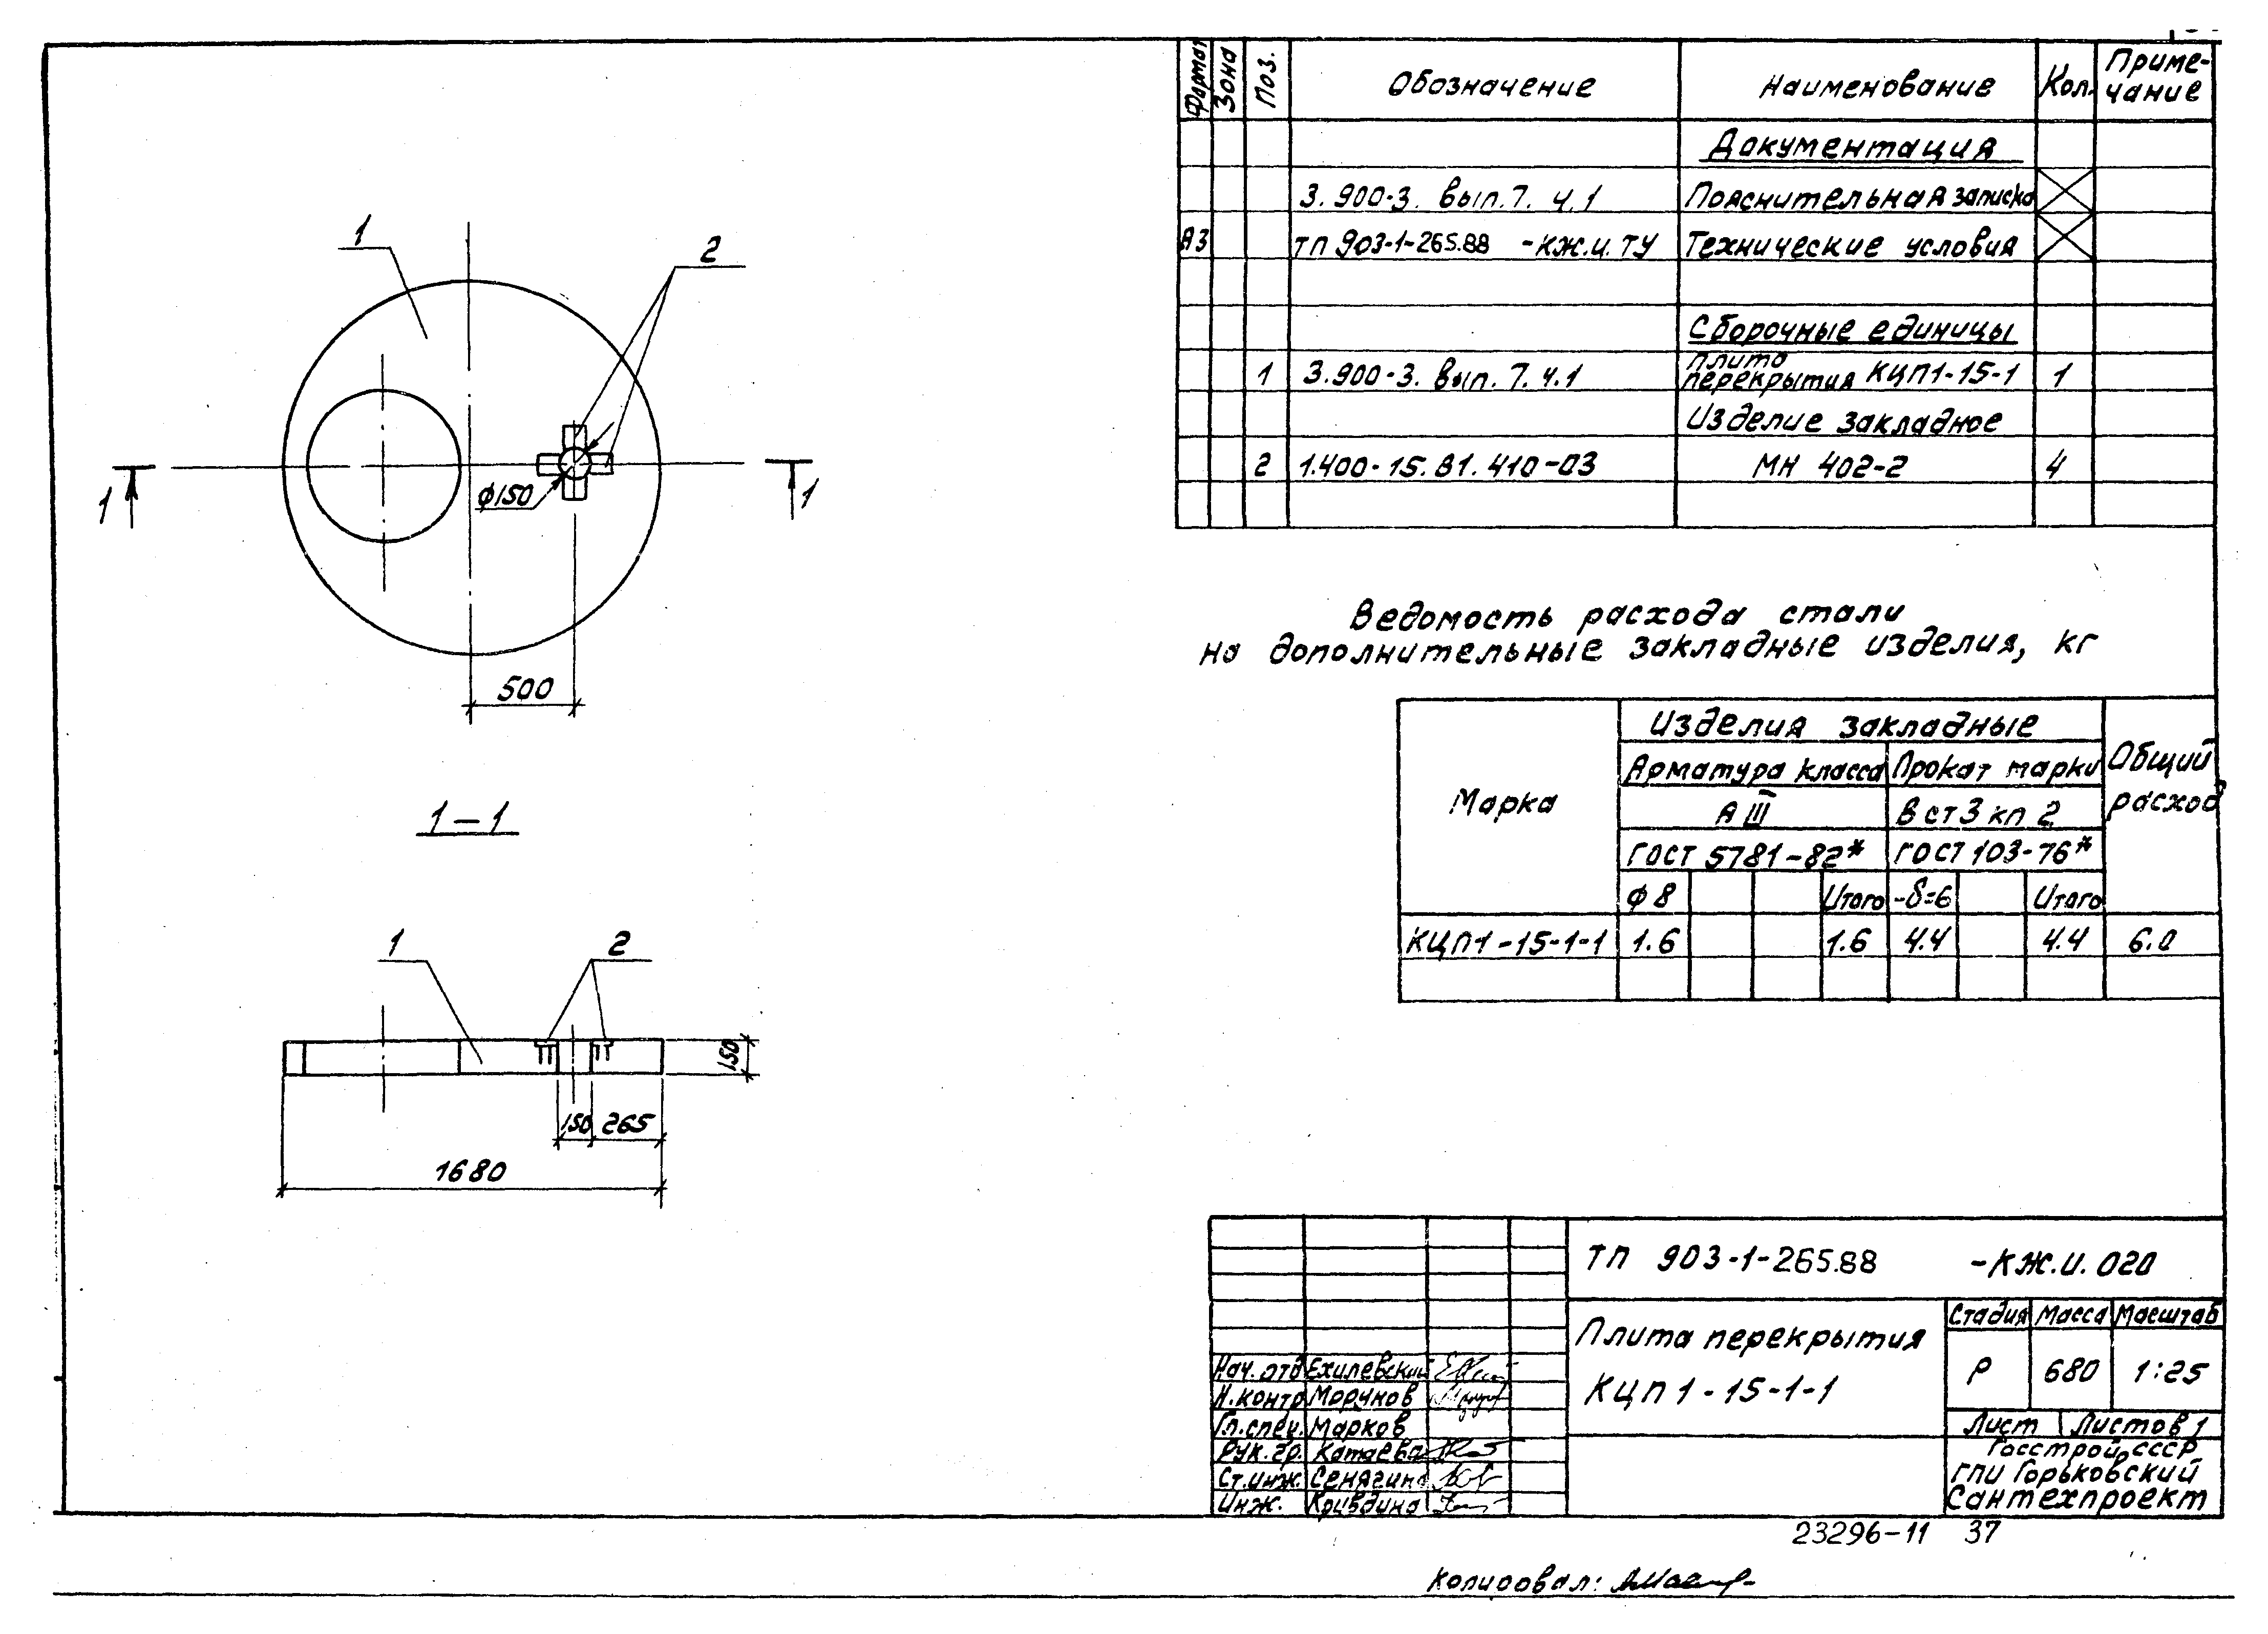 Формат Зона Поз. Обозначение Наименование Кол. Приме-
чание
Документация
3.900-3. вып.7. ч.1 Пояснительная записка
А3 ТП 903-1-265.88 -КЖ.И.ТУ Технические условия
Сборочные единицы
Плита
1 3.900-3. вып.7.ч.1 перекрытия КЦП1-15-1 1
Изделие закладное
2 1.400-15.В1.410-03 МН 402-2 4
1
2
1 1
ф150
500
1-1
1 2
150
150 265
1680
Ведомость расхода стали
на дополнительные закладные изделия, кг
Марка Изделия закладные Общий
расход
Арматура класса Прокат марки
А III В ст 3 кп 2
ГОСТ 5781-82* ГОСТ 103-76*
ф 8 Итого -δ=6 Итого
КЦП1-15-1-1 1.6 1.6 4.4 4.4 6.0
ТП 903-1-265.88 -КЖ.И.020
Плита перекрытия
КЦП1-15-1-1
Стадия Масса Масштаб
Р 680 1:25
Лист Листов 1
Госстрой СССР
ГПИ Горьковский
Сантехпроект
Нач.отд Ехилевский
Н.контр Морунов
Гл.спец. Марков
Рук.гр. Катаева
Ст.инж. Сенягина
Инж. Кривдина
23296-11 37
Копировал: